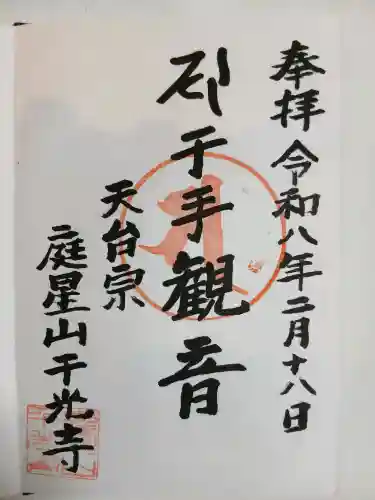 奉拝 令和八年二月十八日
千手観音
天台宗
庭星山千光寺